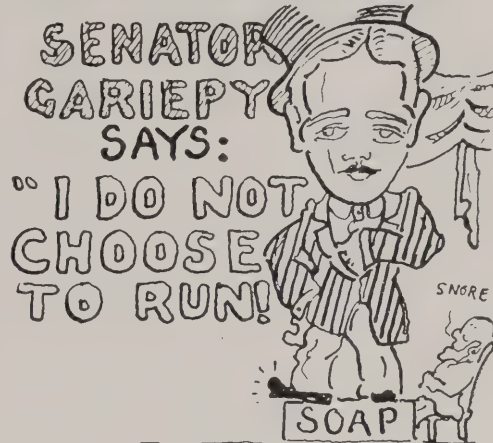 SENATOR
GARIEPY
SAYS:
"I DO NOT
CHOOSE
TO RUN!
SNORE
SOAP